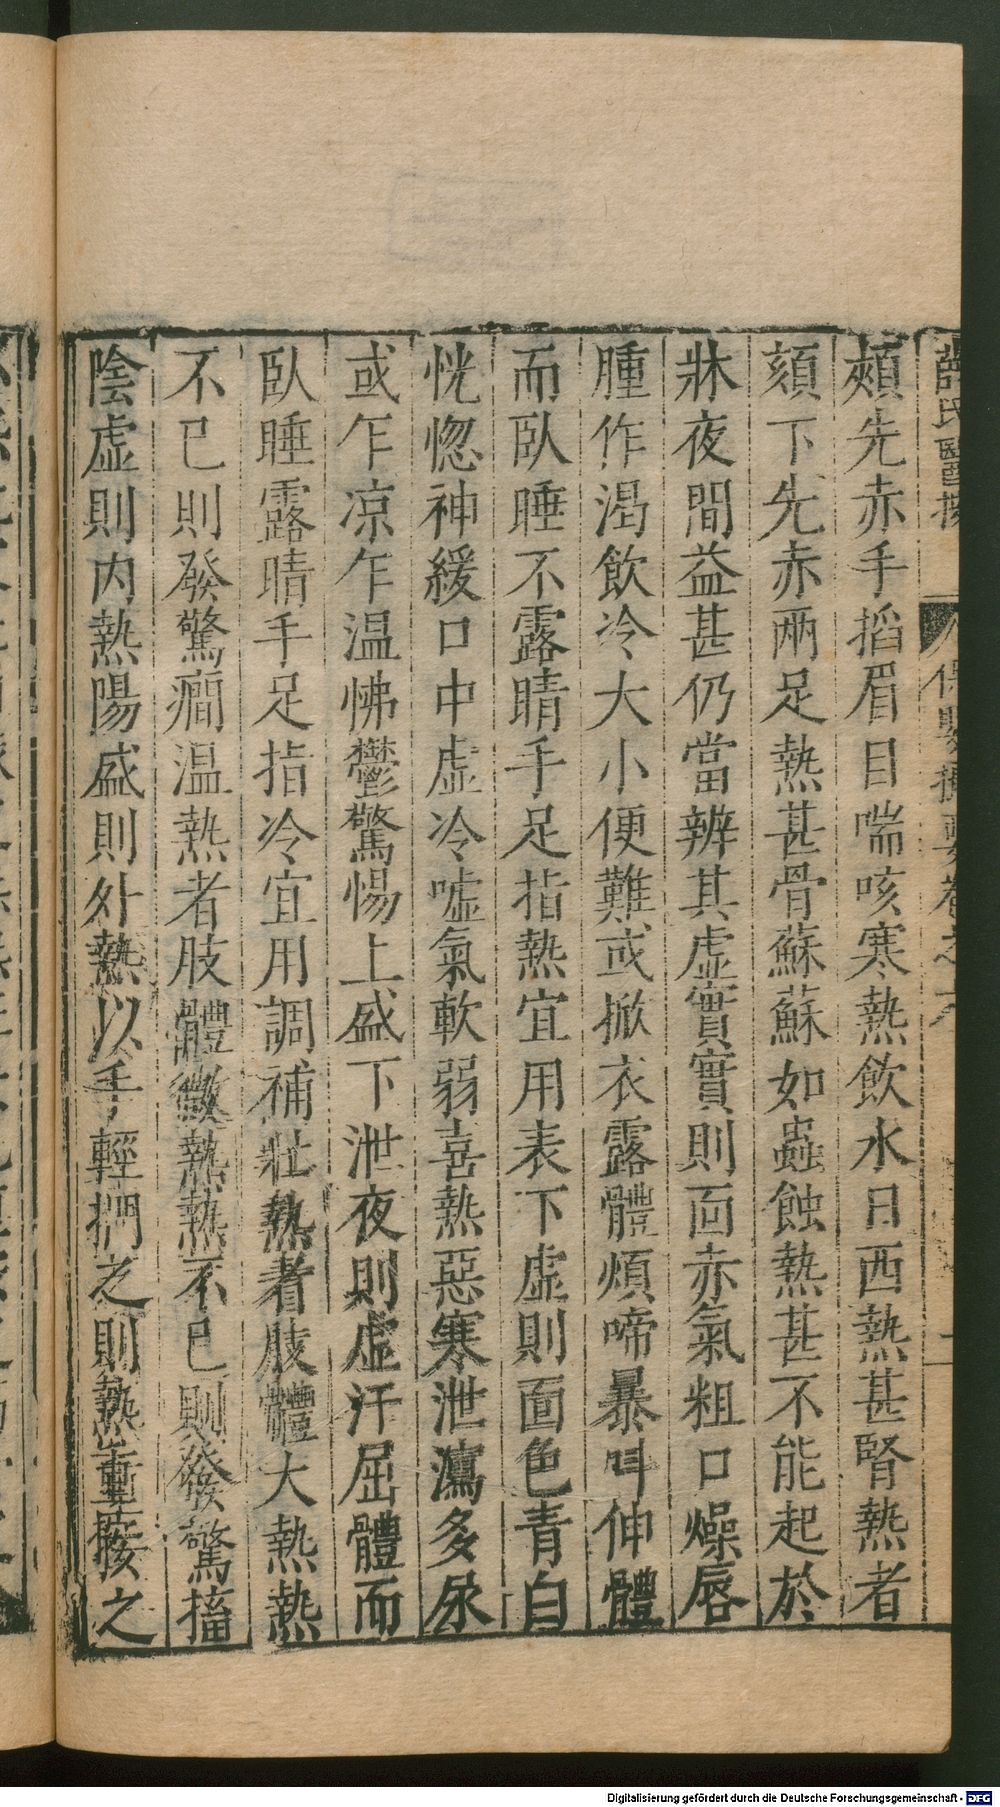 薛氏醫按 保嬰撮要卷之六
頰先赤手搯眉目喘咳寒熱飲水日西熱甚腎熱者
頦下先赤兩足熱甚骨蘇蘇如蟲蝕熱甚不能起於
牀夜間益甚仍當辨其虛實實則面赤氣粗口燥唇
腫作渴飲冷大小便難或掀衣露體煩啼暴叫伸體
而臥睡不露睛手足指熱宜用表下虛則面色青白
恍惚神緩口中虛冷噓氣軟弱喜熱惡寒泄瀉多尿
或乍凉乍温怫鬱驚惕上盛下泄夜則虛汗屈體而
臥睡露睛手足指冷宜用調補壯熱者肢體大熱熱
不已則發驚癇温熱者肢體微熱熱不已則發驚搐
陰虛則内熱陽盛則外熱以手輕捫之則熱重按之
Digitalisierung gefördert durch die Deutsche Forschungsgemeinschaft - DFG